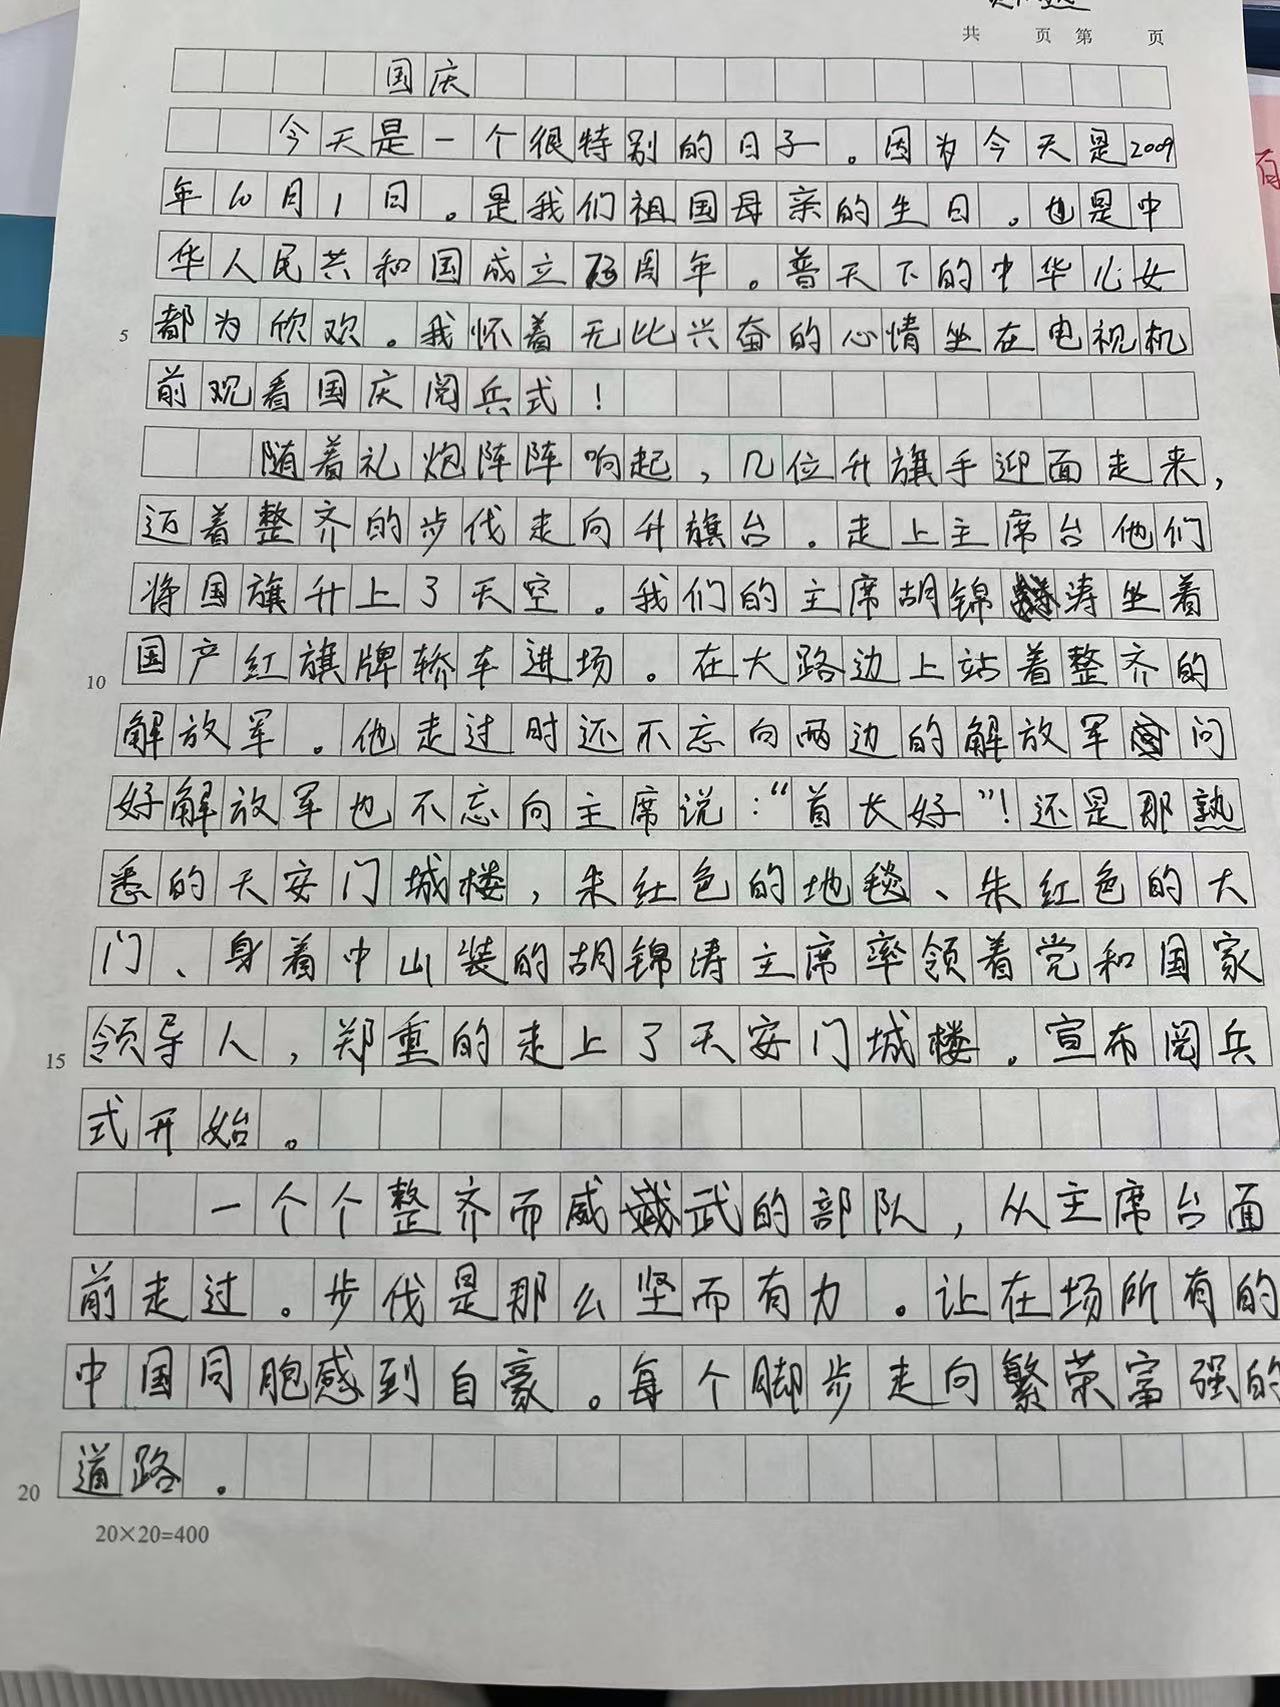 共 页 第 页
国庆
今天是一个很特别的日子。因为今天是2009
年10月1日。是我们祖国母亲的生日。也是中
华人民共和国成立周年。普天下的中华儿女
都为欣欢。我怀着无比兴奋的心情坐在电视机
5
前观看国庆阅兵式！
随着礼炮阵阵响起，几位升旗手迎面走来，
迈着整齐的步伐走向升旗台。走上主席台他们
将国旗升上了天空。我们的主席胡锦涛坐着
国产红旗牌轿车进场。在大路边上站着整齐的
10
解放军。他走过时还不忘向两边的解放军问
好解放军也不忘向主席说：“首长好”！还是那熟
悉的天安门城楼，朱红色的地毯、朱红色的大
门、身着中山装的胡锦涛主席率领着党和国家
领导人，郑重的走上了天安门城楼。宣布阅兵
15
式开始。
一个个整齐而威武的部队，从主席台面
前走过。步伐是那么坚而有力。让在场所有的
中国同胞感到自豪。每个脚步走向繁荣富强的
道路。
20
20×20=400